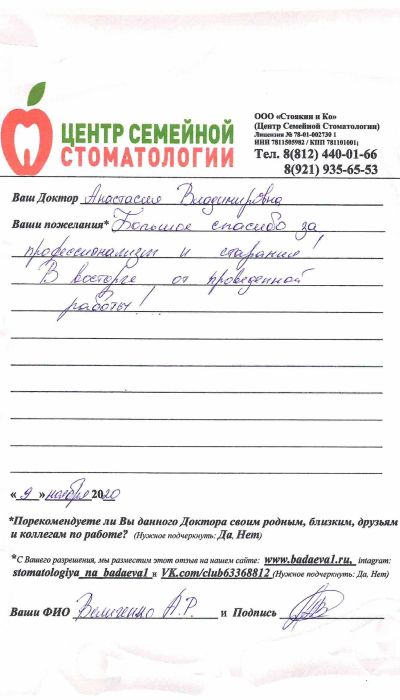 ЦЕНТР СЕМЕЙНОЙ
СТОМАТОЛОГИИ
ООО «Стоякин и Ко»
(Центр Семейной Стоматологии)
Лицензия № 78-01-002730 1
ИНН 7811505982 / КПП 781101001;
Тел. 8(812) 440-01-66
8(921) 935-65-53
Ваш Доктор Анастасия Владимировна
Ваши пожелания* Большое спасибо за
профессионализм и старания!
В восторге от проведенной
работы!
« 9 » ноября 2020
*Порекомендуете ли Вы данного Доктора своим родным, близким, друзьям
и коллегам по работе? (Нужное подчеркнуть: Да, Нет)
*С Вашего разрешения, мы разместим этот отзыв на нашем сайте: www.badaeva1.ru, intagram:
stomatologiya_na_badaeva1 и VK.com/club63368812 (Нужное подчеркнуть: Да, Нет)
Ваши ФИО Величенко А.Р. и Подпись